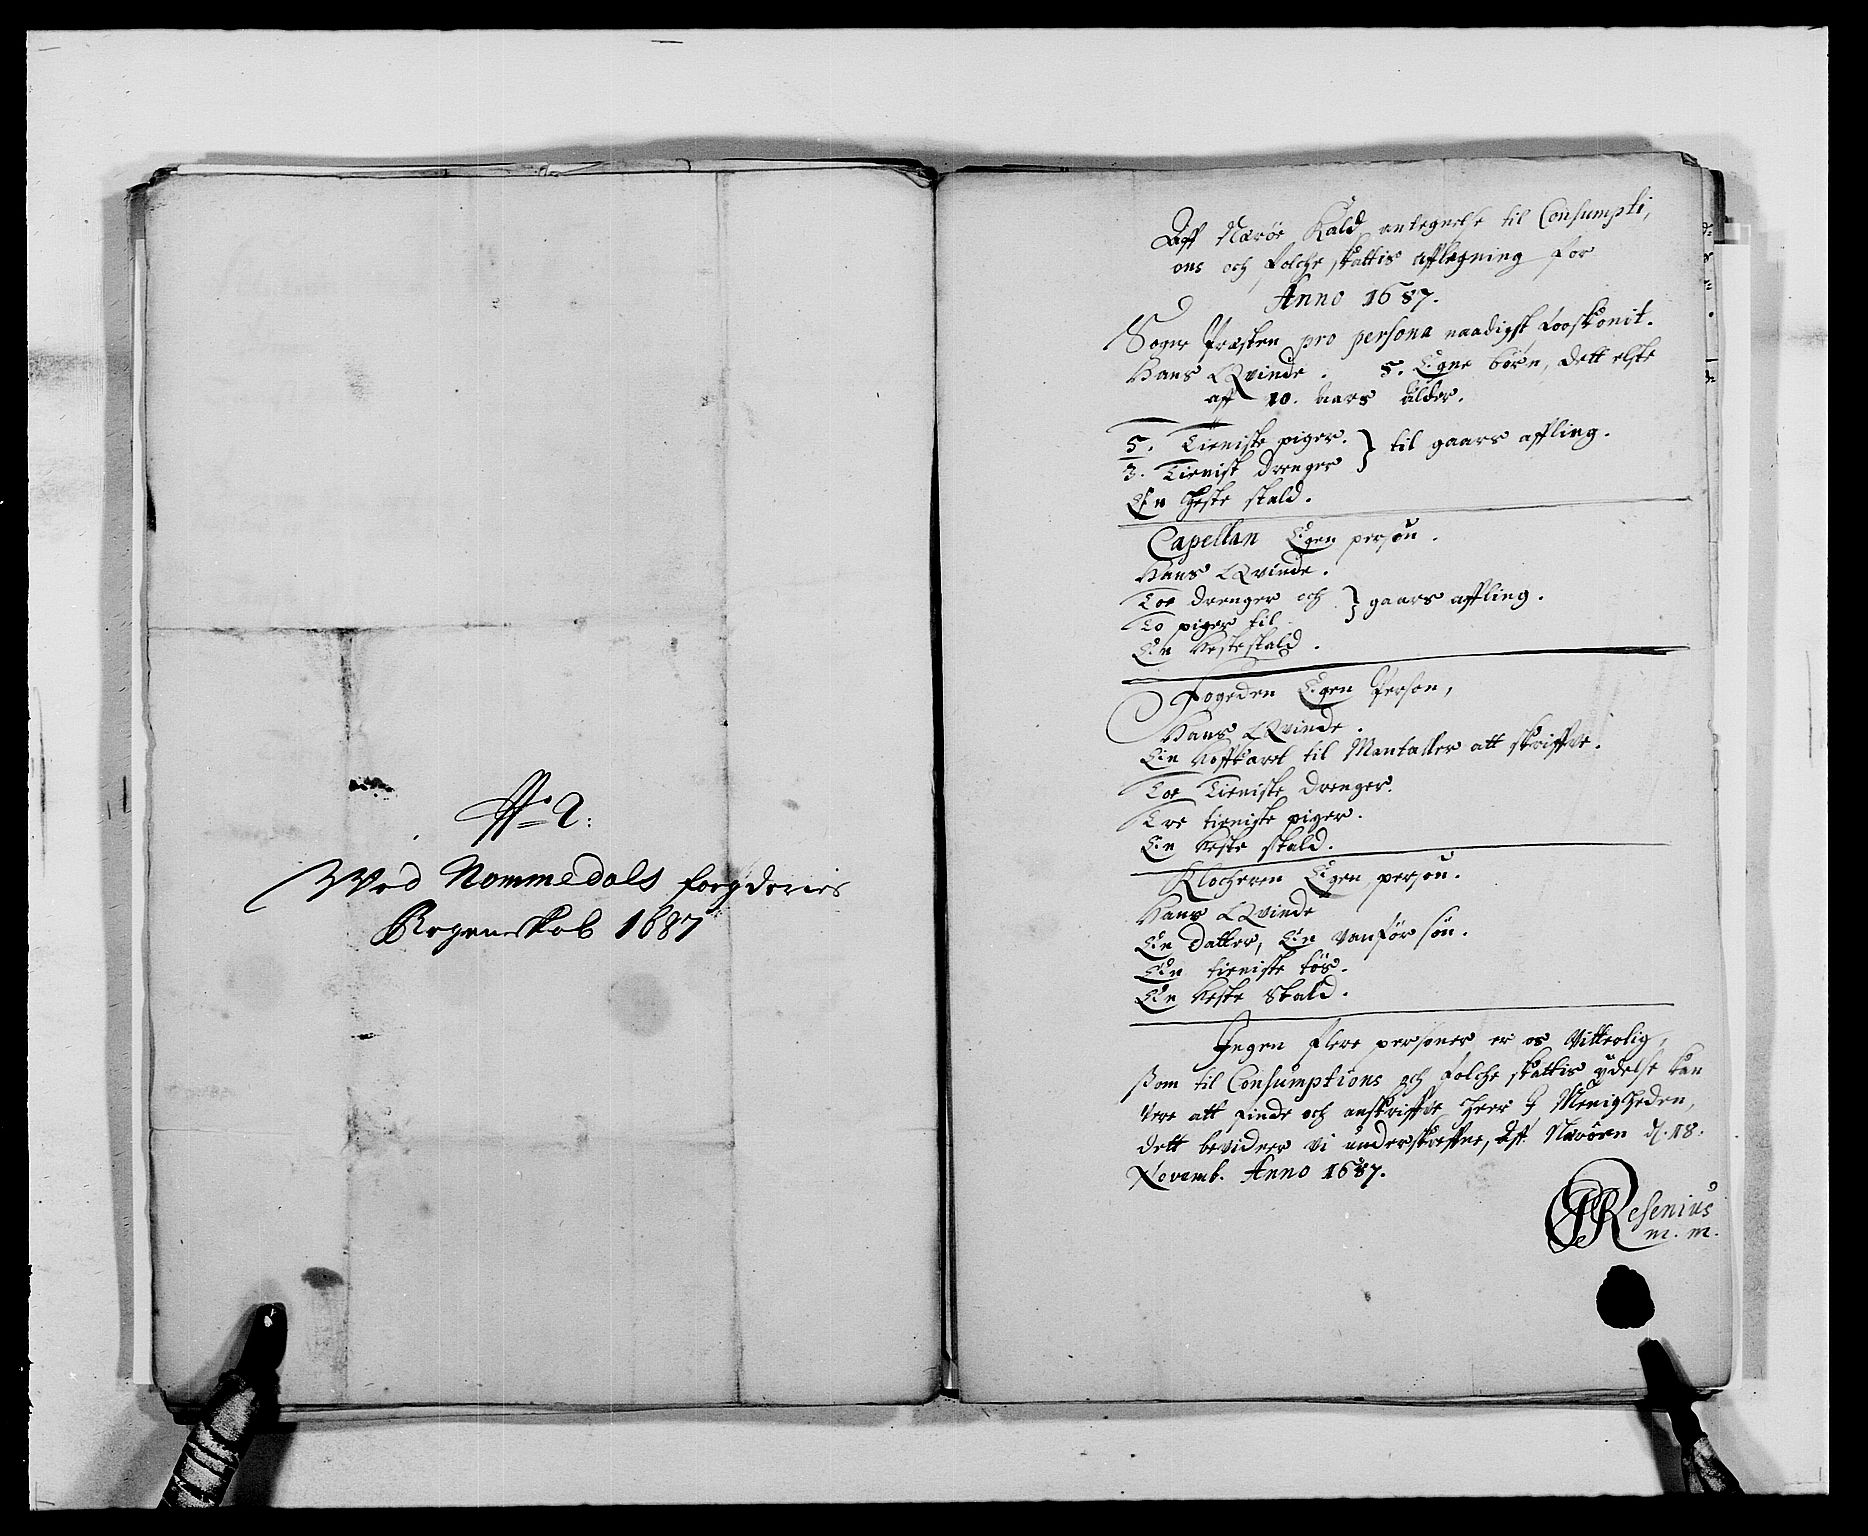 No 2:
Wed Nommedals fogderies
Regenskab 1687
Aff Nærøe Kald antegnelse til Consumpti,
ons och folche skattis afflegning for
Anno 1687.
Sogne Præsten pro persona naadigst forskonit.
Hans Qvinde. 5. Egne børn, dett elste
aff 10. aars alder.
5. Tieniste piger. } til gaars affling.
3. Tienist drenger
En heste stald.
Capellan Egen person.
Hans Qvinde.
Toe drenger och } gaars affling.
To piger til
En hestestald.
Fogeden Egen Person,
Hans Qvinde.
En hoffkarl til Mantaller att skriffve.
Toe Tieniste drenger.
Tre tieniste piger.
En heste stald.
Klocheren Egen person.
Hans Qvinde
En datter, En vanfør søn.
En tieniste tøs.
En heste stald.
Ingen flere personer er os vitterlig,
som til Consumptions och folche skattis ydelse kan
være att finde och anskriffve heer J Menigheden,
dett bevidner vi underskreffne, Aff Nærøen d. 18.
Novemb. Anno 1687.
Resenius
m. m.